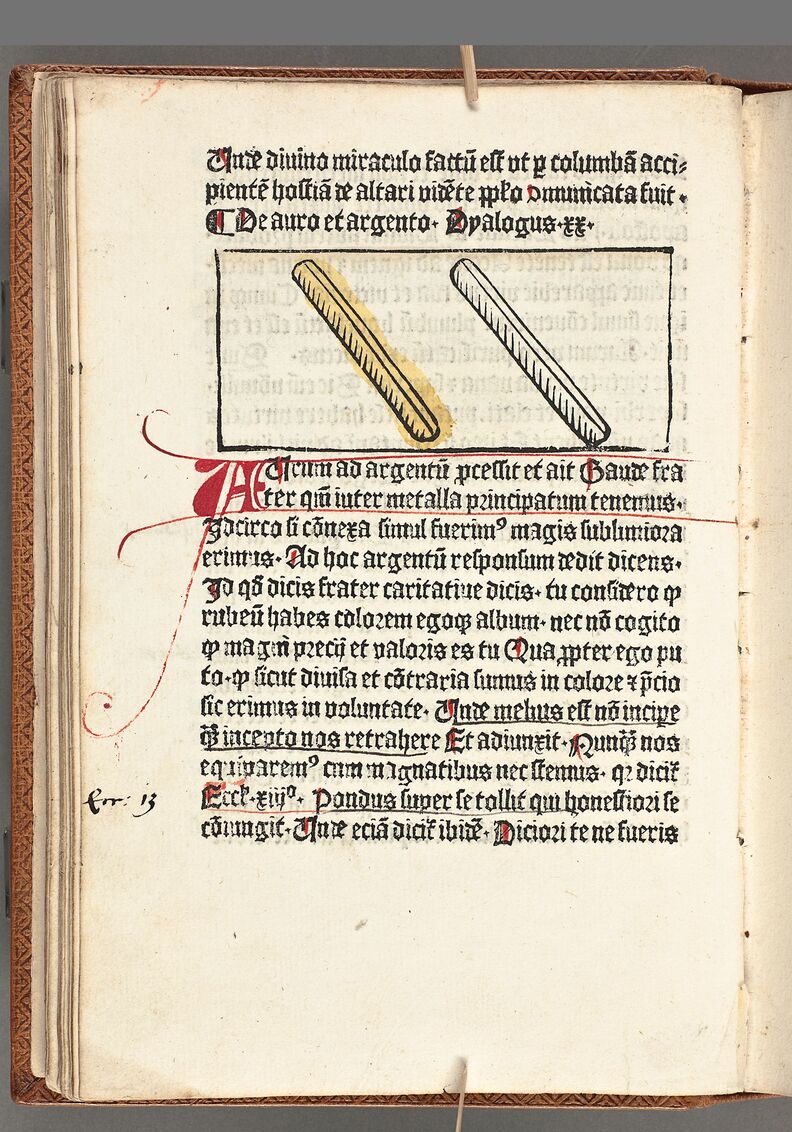 Unde diuino miraculo factū est vt ꝑ columbā acci⸗
pientē hostiā de altari vidēte ꝓꝑlo ꝯmunicata fuit.
¶ De auro et argento. Dyalogus.xx.
AUrum ad argentū ꝓcessit et ait Gaude fra
ter qm̄ inter metalla principatum tenemus.
Idcirco si cōnexa simul fuerimꝰ magis sublimiora
erimus. Ad hoc argentū responsum dedit dicens.
Id qd̄ dicis frater caritatiue dicis. tu considero ꝙ
rubeū habes colorem egoqꝫ album. nec nō cogito
ꝙ magni precij et valoris es tu Qua ꝓpter ego pu
to.ꝙ sicut diuisa et cōtraria sumus in colore ⁊ p̄cio
sic erimus in voluntate. Unde melius est nō incipe
qꝫ̄ incepto nos retrahere Et adiunxit. Nunqꝫ̄ nos
equiparemꝰ cum magnatibus nec stemus. qꝛ dicit̃
Eccẜ.xiijº. Pondus super se tollit qui honestiori se
cōiungit. Unde eciā dicit̃ ibidē. Diciori te ne fueris
13